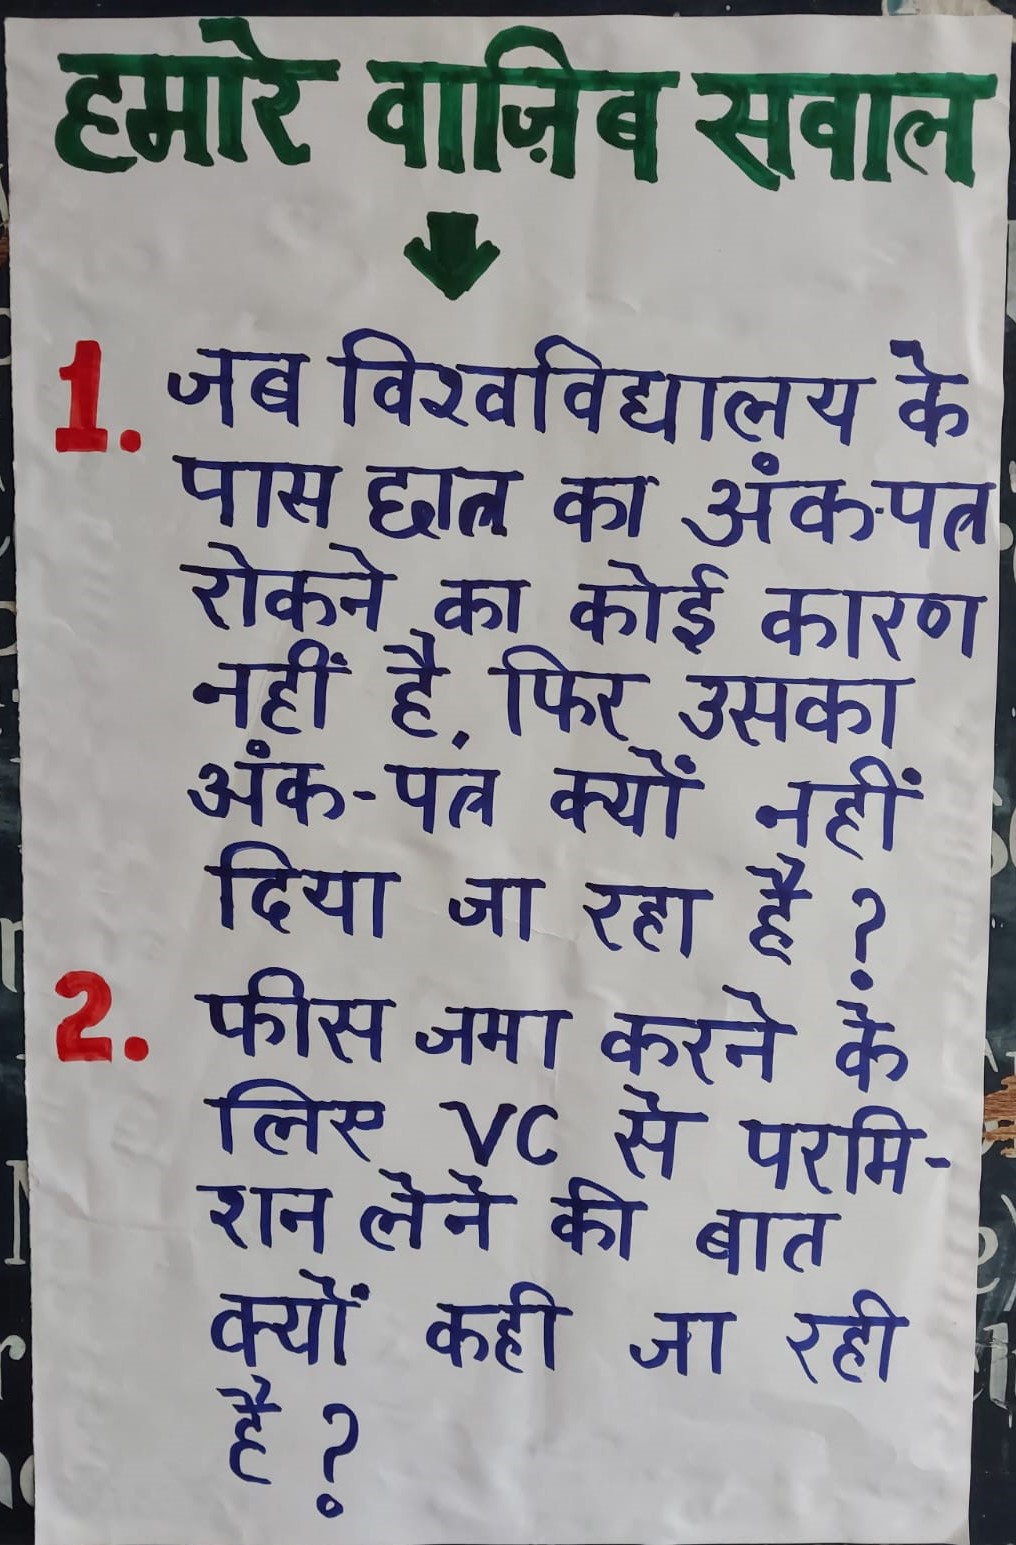 हमारे वाज़िब सवाल
1. जब विश्वविद्यालय के
पास छात्र का अंक-पत्र
रोकने का कोई कारण
नहीं है, फिर उसका
अंक-पत्र क्यों नहीं
दिया जा रहा है?
2. फीस जमा करने के
लिए VC से परमि-
शन लेने की बात
क्यों कही जा रही
है?